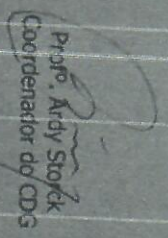 Profº. Ardy Storck
Coordenador do CDG